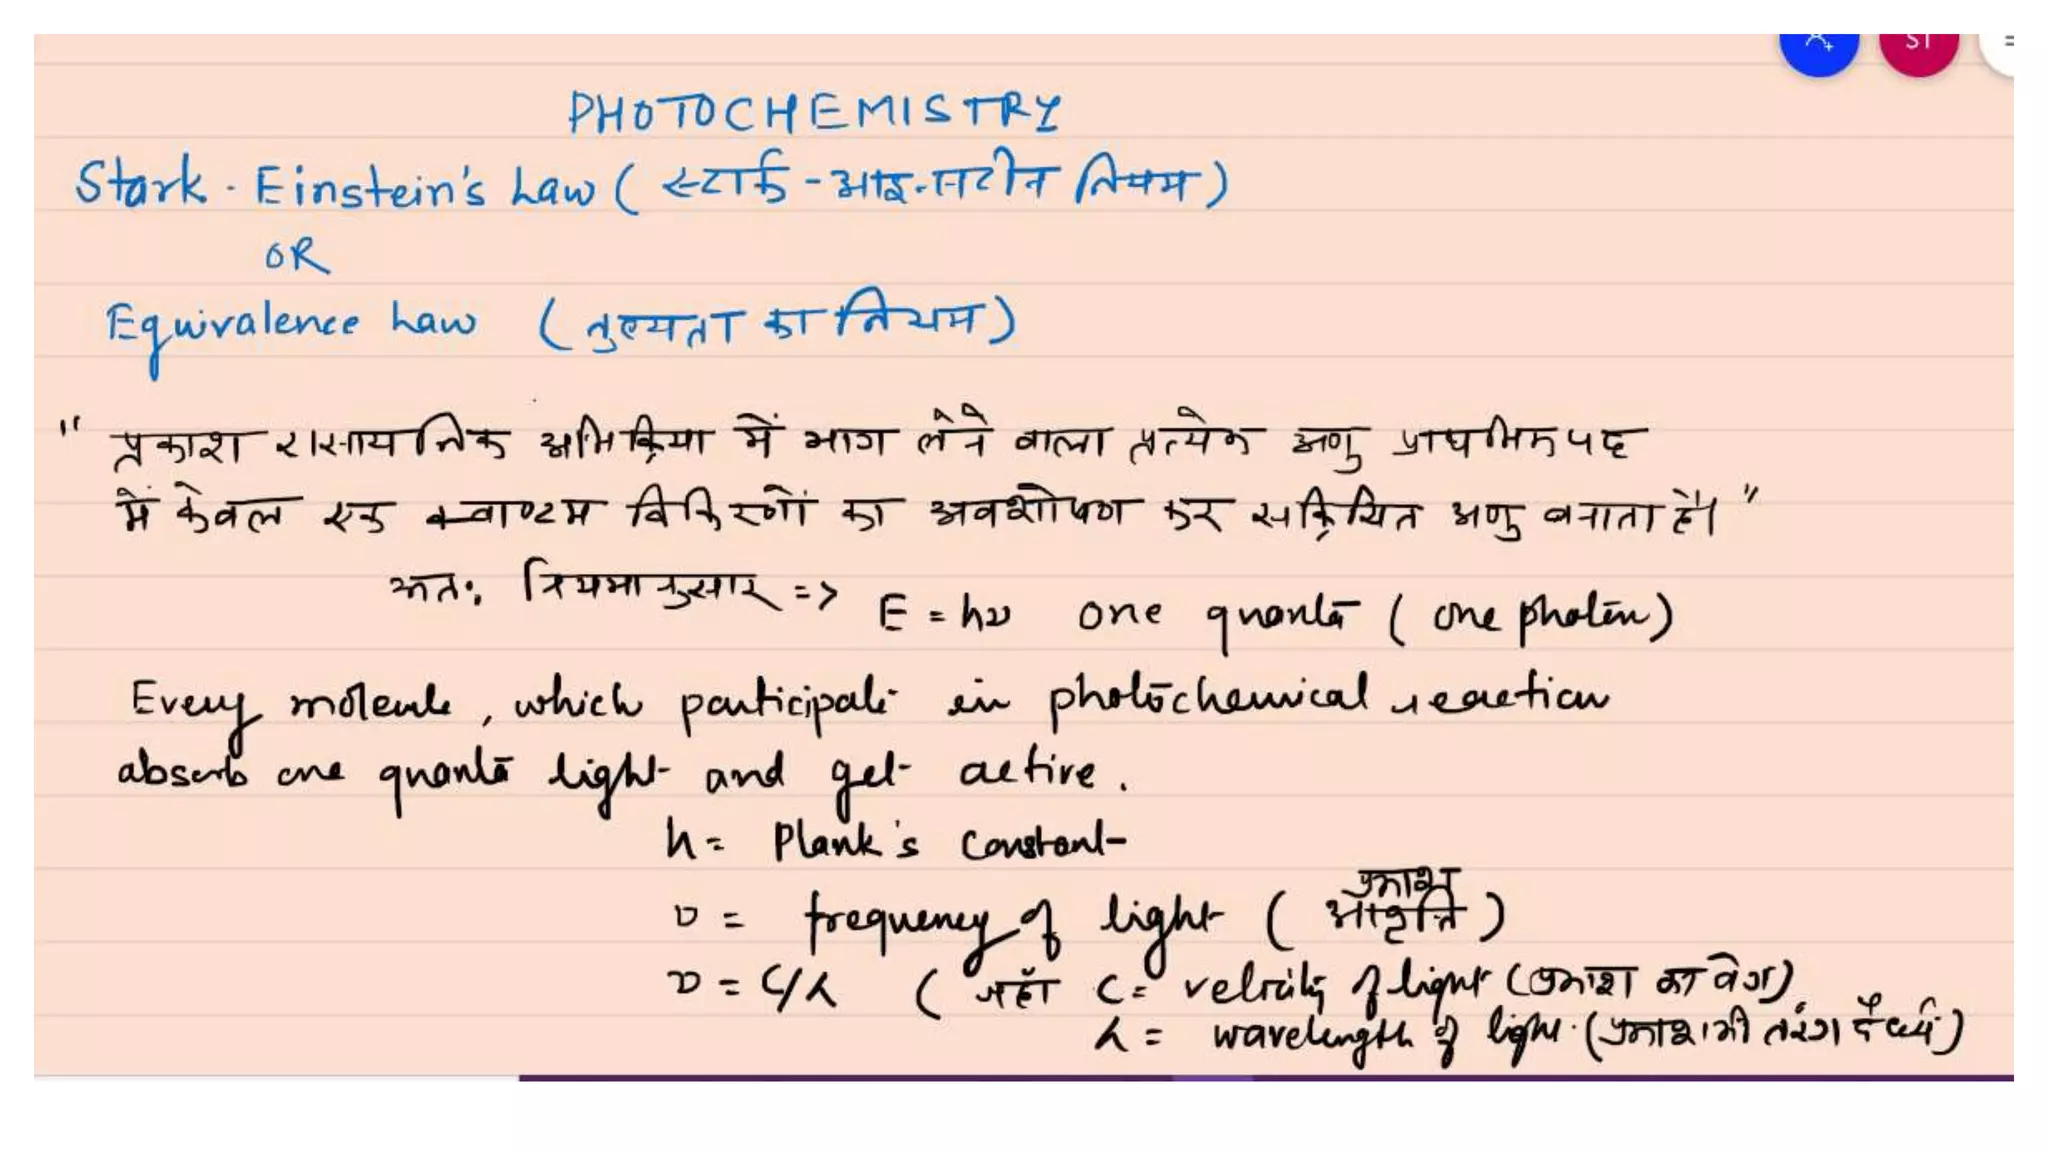 ST
PHOTOCHEMISTRY
Stark - Einstein's Law ( स्टार्क - आइन्सटीन नियम )
OR
Equivalence Law ( तुल्यता का नियम )
" प्रकाश रासायनिक अभिक्रिया में भाग लेने वाला प्रत्येक अणु प्राथमिक पद
में केवल एक क्वाण्टम विकिरणों का अवशोषण कर सक्रियित अणु बनाता है। "
अतः, नियमानुसार => E = hν one quanta ( one photon )
Every molecule, which participate in photochemical reaction
absorb one quanta light and get active.
h = Plank's Constant
ν = frequency of light ( प्रकाश आवृत्ति )
ν = c/λ ( जहाँ c = velocity of light (प्रकाश का वेग)
λ = wavelength of light. (प्रकाश की तरंग दैर्ध्य)